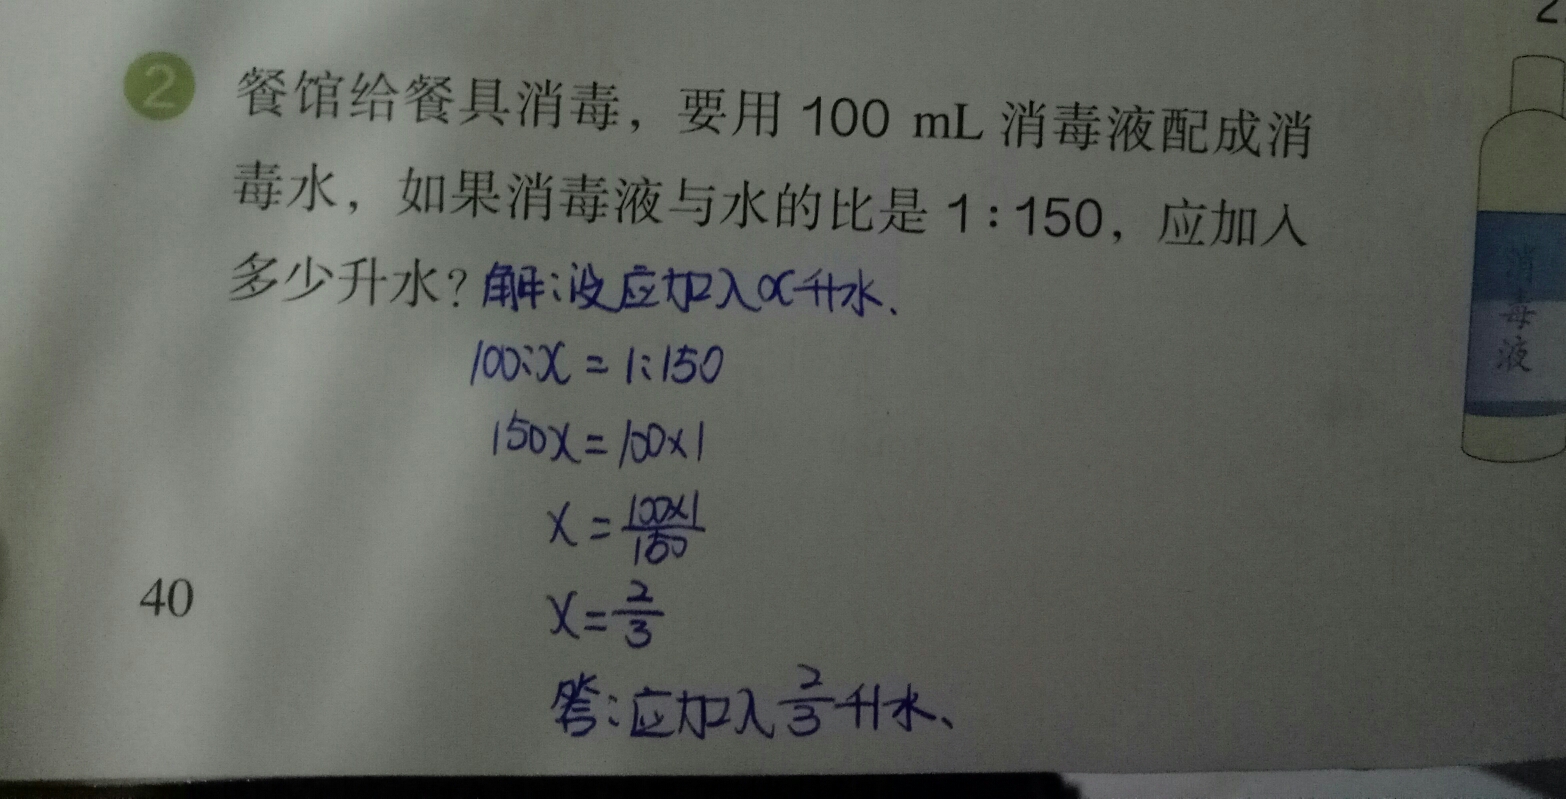 2
2 餐馆给餐具消毒，要用 100 mL 消毒液配成消
毒水，如果消毒液与水的比是 1：150，应加入
多少升水？解：设应加入x升水、
100:x = 1:150
150x = 100×1
x = \frac{100×1}{150}
x = \frac{2}{3}
答：应加入\frac{2}{3}升水、
消毒液
40